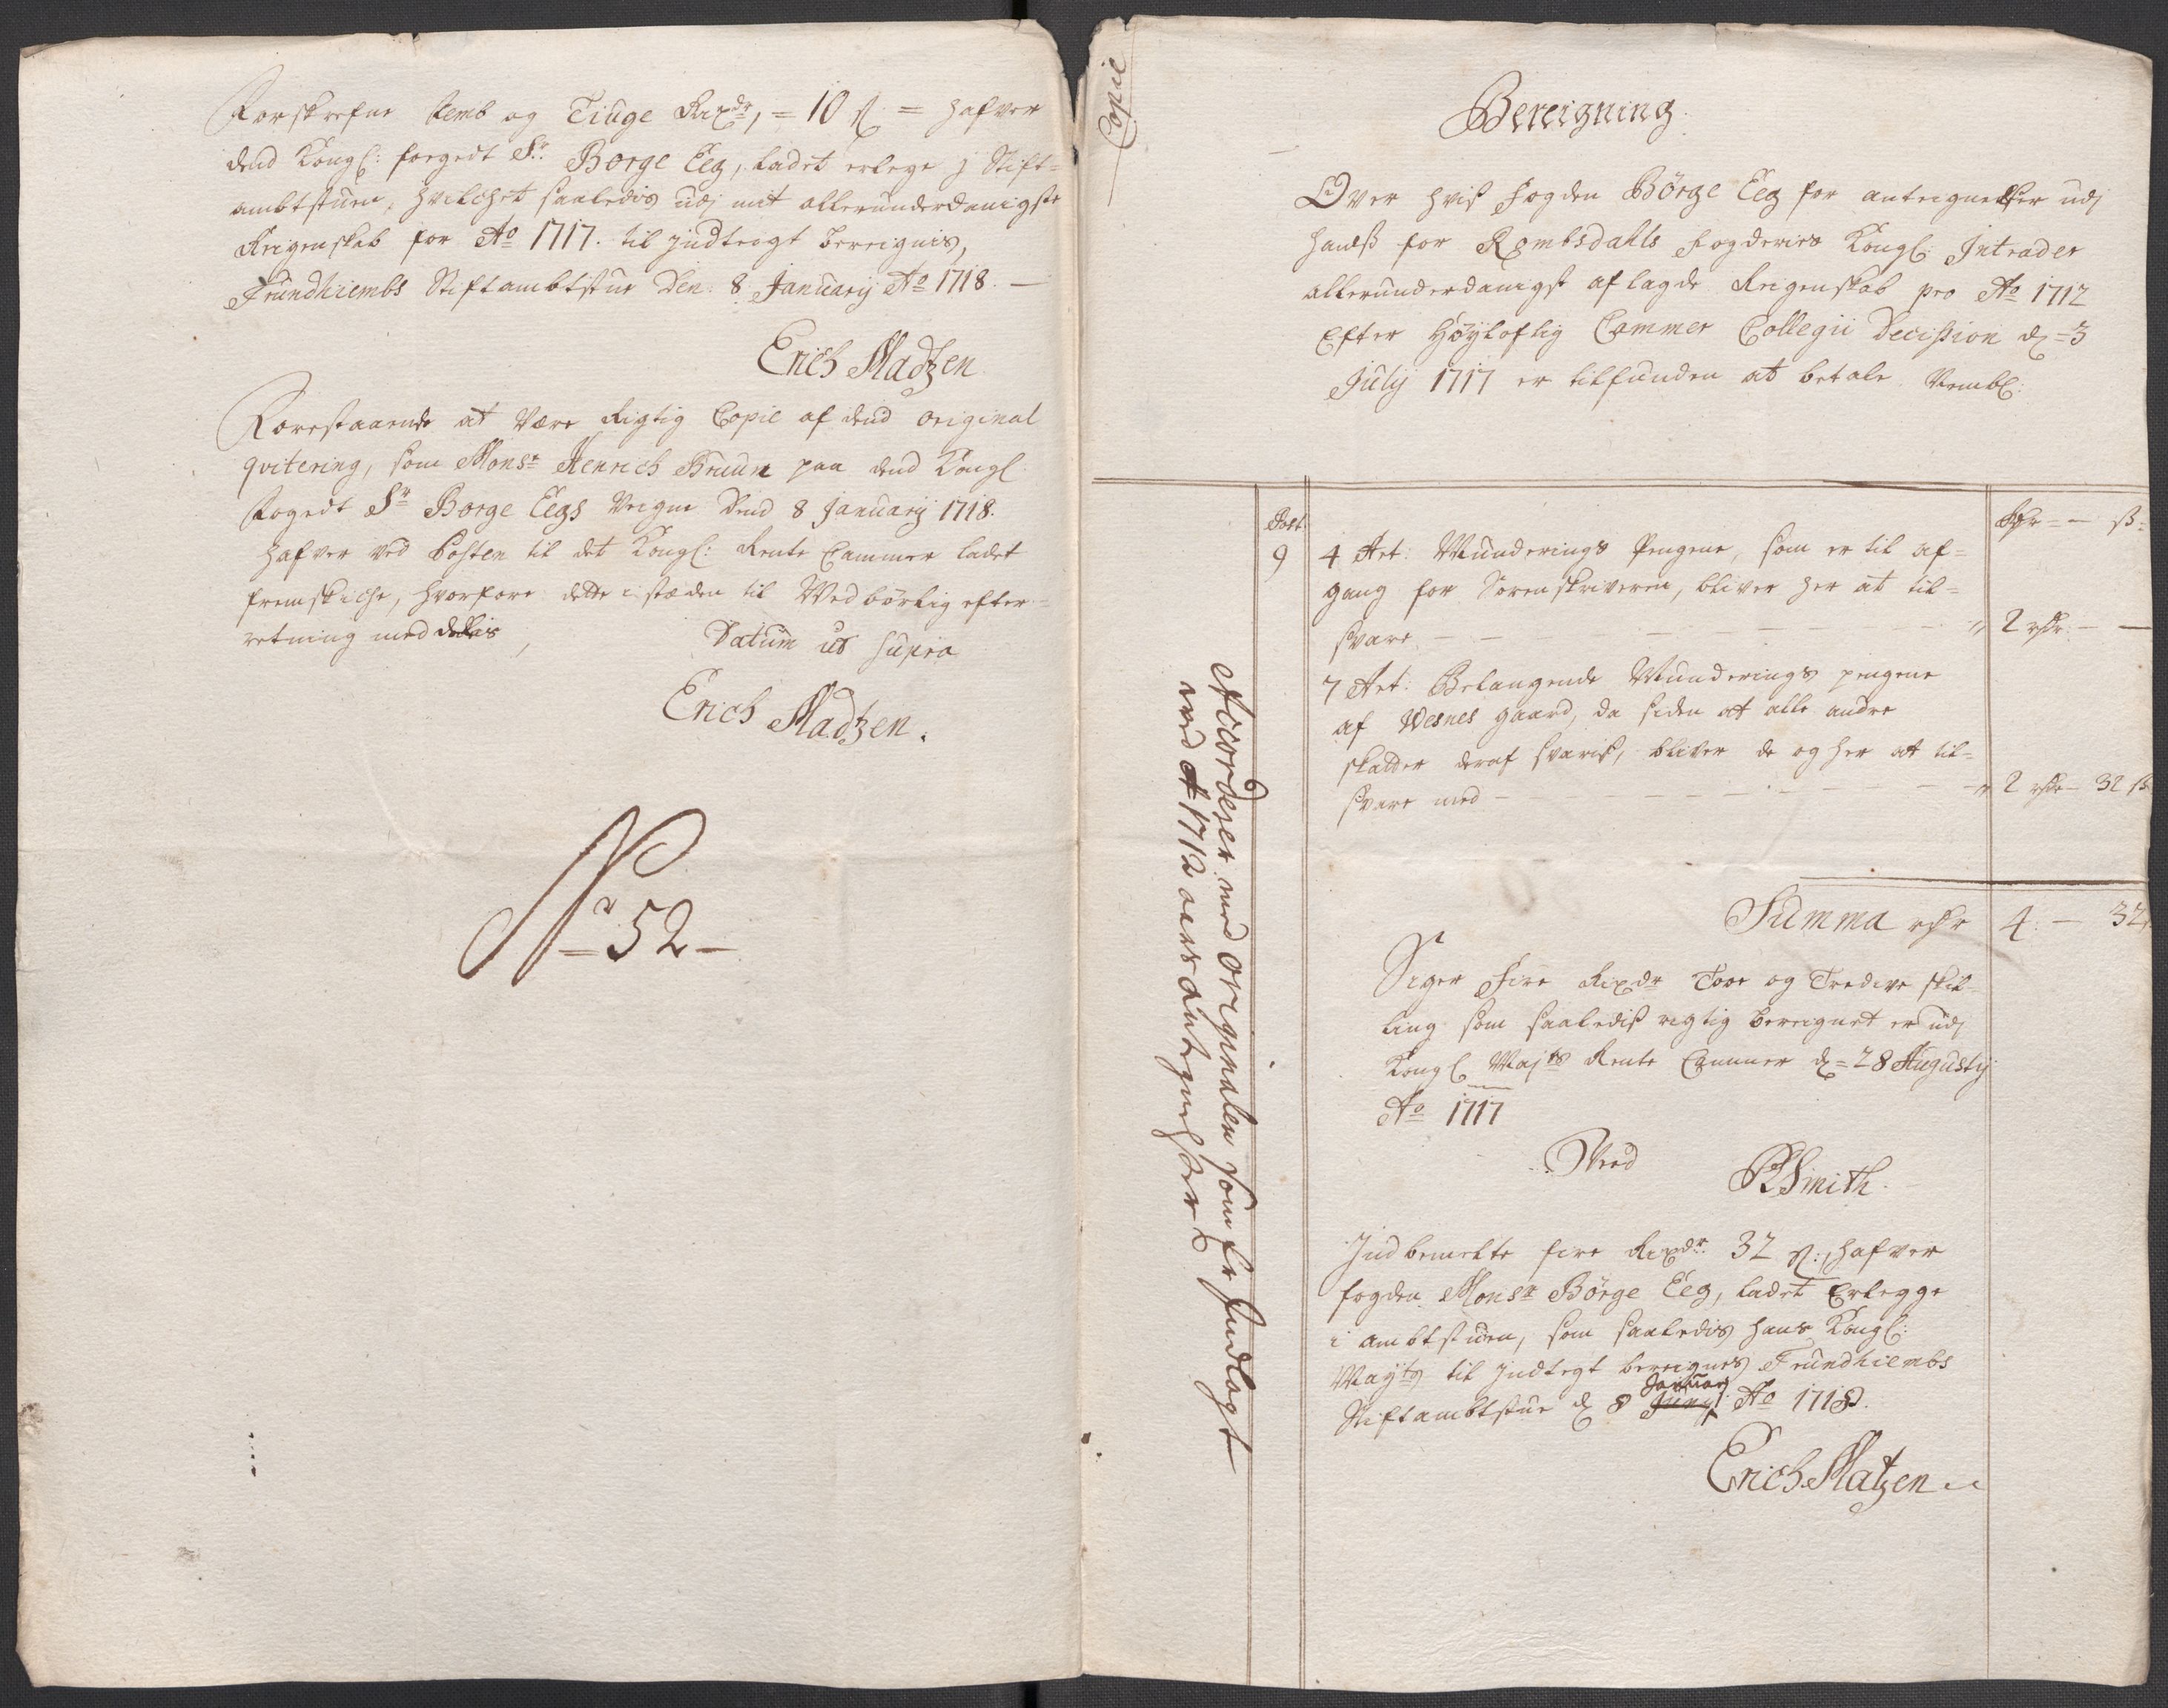 Forskrefne femb og Tiuge Rixdr, = 10 ß = hafver
dend Kongl: foegedt Sr. Børge Eeg, ladet erlege j Stift-
ambtstuen, hvilchet saaledis udj mit allerunderdanigste
Reigenskab for Ao 1717. til jndteigt bereignis,
Trundhiembs Stiftambtstue Den: 8 January Ao 1718.
Erich Madtzen
Forestaaende at være Rigtig Copie af dend original
qvitering, som Monsr Henrich Bruun paa dend Kongl
Fogedt Sr Borge Eegs Veigne Dend 8 January 1718.
hafver ved Posten til det Kongl: Rente Cammer ladet
fremskiche, hvorfore dette i stæden til Wedbørlig efter-
retning med deelis,
Datum ut supra
Erich Madtzen.
No 52
Copie
Bereigning
Over hvis Fogden Børge Eeg for antegnelser udj
hanß for Rombsdahls Fogderies Kongl: Intrader
allerunderdanigst aflagde Reigenskab pro Ao 1712
Efter Høyloflig Cammer Collegii Decission d = 3
July 1717 er tilfunden at betale Nembl:
Post
Rdr - ß
9
4 Art: Munderings Pengene, som er til af-
gang for Sorenskriveren, bliver her at til-
svare
2 rdr
7 Art: Belangende Munderings pengene
af Vesnes gaard, da siden at alle andre
skatter deraf svaris, bliver de og her at til-
svare med
2 rdr - 32 ß
Summa rdr 4 - 32
Siger Fire Rixdr Tove og Tredive skil-
ling som saaledis rigtig bereignet er udj
Kongl Mayts Rente Cammer d = 28 Augusty
Ao 1717
Ved
RSmith
Indbemelte fire Rixdr. 32 ß, hafver
fogden Monsr Børge Eeg, ladet Erlegge
i ambtstuen, som saaledis hans Kongl:
Mayts til Indtegt bereignes Trundhiembs
Stiftambtstue d 8 January Ao 1718.
Erich Matzen
Accorderer med Originalen som er Indlagt
ved Ao 1712 aers Antegnelser